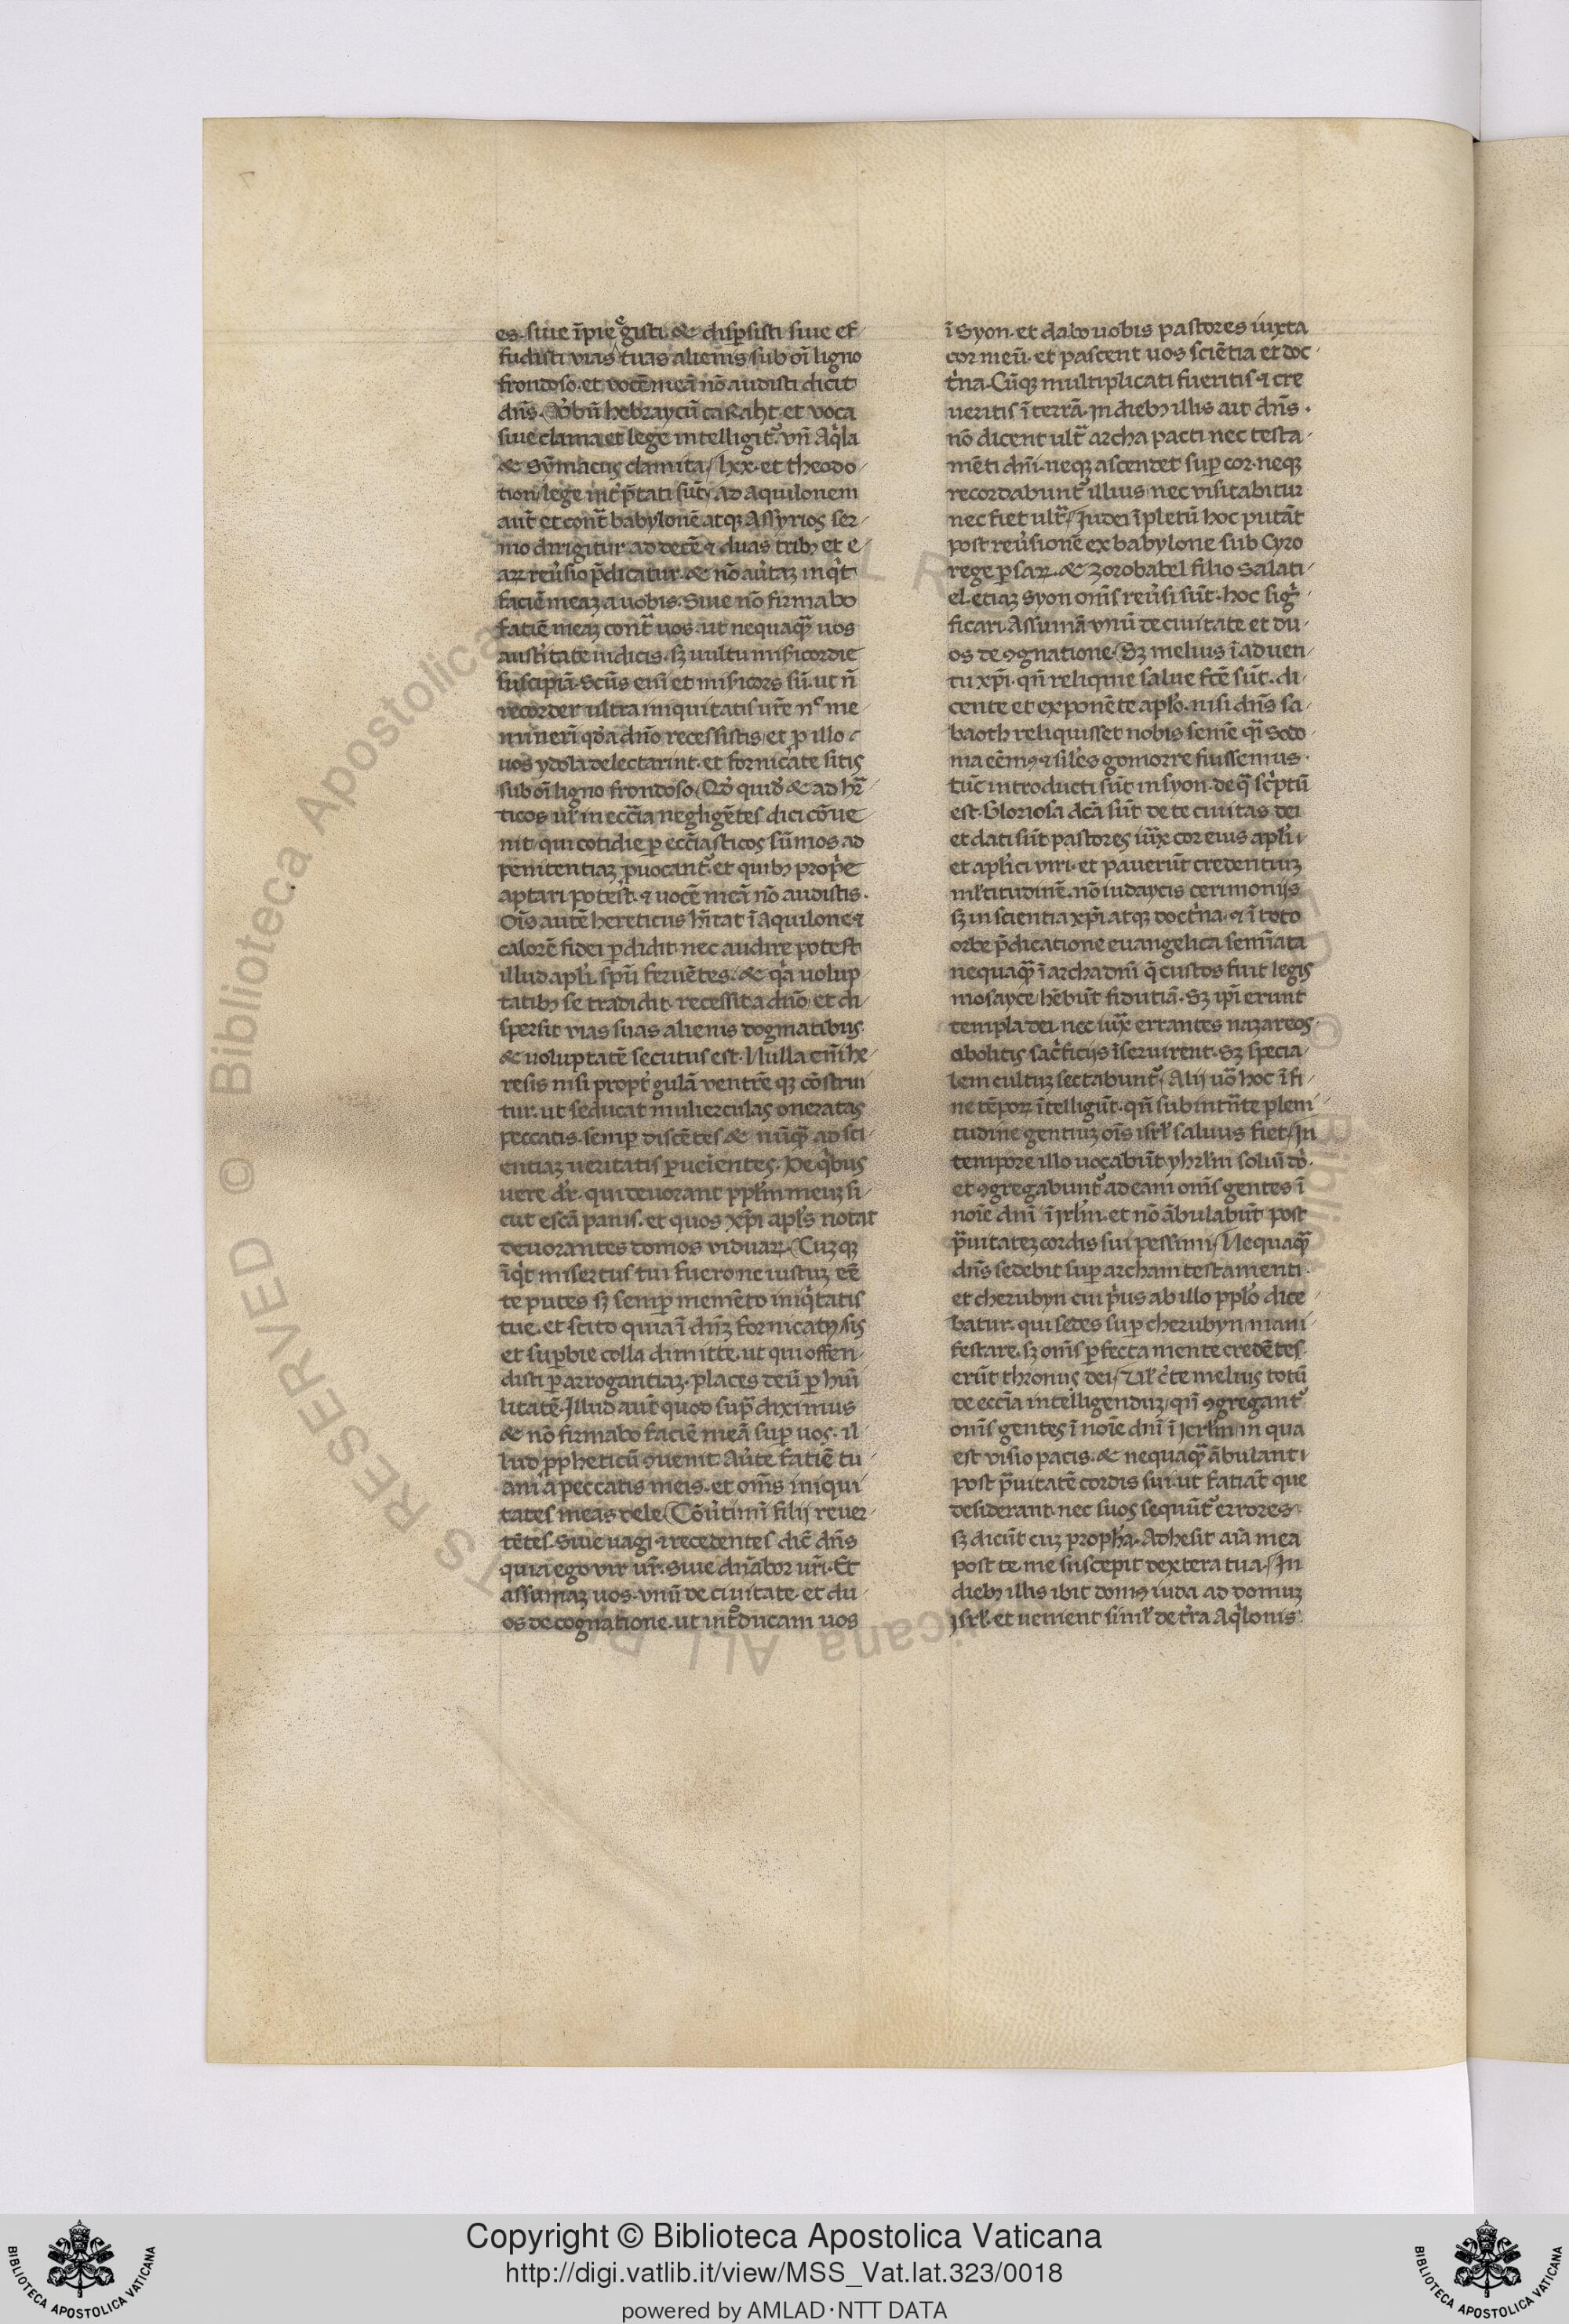 es. siue īpie egisti. & disp̄sisti siue ef-
fudisti vias tuas alienis sub oī ligno
frondoso. et vocē meā nō audisti dicit
dn̄s. Ūbū hebraycū caRaht. et voca
siue clama et lege intelligit᷑. vn̄ Aqͥla
& Sȳmacus clamita, lxx. et theodo-
tion lege int̄p̄tati sūt. ad aquilonem
aut̄ et cont̄ babylonē atqꝫ Assyrios ser-
mo dirigitur. ad decē ⁊ duas tribꝫ et e-
aꝝ reu̓sio p̄dicatur. & nō au̓taꝫ inqͥt
faciē meaꝫ a uobis. Siue nō firmabo
fatiē meaꝫ cont̄ uos. ut nequaqꝫ̄ uos
aust̓itate iudicis. sꝫ uultu misicordie
suscipiā. Scūs eni et misicors sū. ut n̄
recorder ultra iniquitatis ur̄e nͨ me-
minerī qd̓ a dn̄o recessistis et ꝓ illo
uos ydola delectarint. et fornicate sitis
sub oī ligno frondoso. Qd̓ quidē & ad hr̄e
ticos ul̓ in ecc̄ia negligētes dici cōue
nit. qui cotidie ꝑ ecc̄iasticos sūmos ad
penitentiaꝫ ꝓuocant᷑. et quibꝫ prop̓e
aptari potest. ⁊ uocē meā nō audistis.
Oīs autē hereticus hītat ī aquilone ⁊
calorē fidei ꝑdidit. nec audire potest
illud apl̓i. spū feruētes. & qͥa uolup
tatibꝫ se tradidit. recessit a dn̄o et di-
spersit vias suas alienis dogmatibus
& uoluptatē secutus est. Nulla enī he-
resis nisi propt̓ gulā ventrēqꝫ cōstrui
tur. ut seducat mulierculas oneratas
peccatis. semꝑ discētes & nūqꝫ̄ ad sci-
entiaꝫ ueritatis ꝑueientes. De qͥbus
uere dr̄. qui deuorant ppl̓m meuꝫ si-
cut escā panis. et quos xp̄i apl̓s notat
deuorantes domos viduaꝝ. Cuꝫqꝫ
īqͥt misertus tui fuero ne iustuꝫ eē
te putes sꝫ semꝑ memēto iniqͥtatis
tue. et scito quia ī dn̄ꝫ fornicatꝰ sis
et suꝑbie colla dimitte. ut qui offen-
disti ꝑ arrogantiaꝫ. places deū ꝑ humi
litatē. Illud aut̄ quod sup̄ diximus
& nō firmabo faciē meā suꝑ uos. il-
lud ꝓpheticū ꝯuenit. Au̓te fatiē tu-
am a peccatis meis. et om̄s iniqui-
tates meas dele. Cōu̓timī filij reuer-
tētes. Siue uagi ⁊ recedentes dic̄ dn̄s
quia ego vir ur̄. Siue dn̄abor ur̄i. Et
assumaꝫ uos. vnū de ciuitate. et du-
os de cognatione. ut int̓ducam uos
ī Syon. et dabo uobis pastores iuxta
cor meū. et pascent uos sciētia et doc-
t̓na. Cūqꝫ multiplicati fueritis ⁊ cre
ueritis ī terrā. In diebꝫ illis ait dn̄s.
nō dicent ult̄ archa pacti nec testa-
mēti dn̄i. neqꝫ ascendet suꝑ cor. neqꝫ
recordabunt᷑ illius nec visitabitur
nec fiet ult̄. Iudei īpletū hoc putāt
post reu̓sionē ex babylone sub Cyro
rege ꝑsaꝝ. & Zorobabel filio Salati-
el. etiaꝫ Syon om̄s reu̓si sūt. hoc sigͥ-
ficari. Assumā vnū de ciuitate et du-
os de ꝯgnatione. Sꝫ melius ī aduen-
tu xp̄i. qn̄ reliquie salue fc̄e sūt. di-
cente et exponēte apl̓o. nisi dn̄s sa-
baoth reliquisset nobis semē qͣi Sodo-
ma eēmꝰ ⁊ sil̓es gomorre fuissemus.
tūc introducti sūt in syon. de qͣ sc̓ptū
est. Gloriosa dc̄a sūt de te ciuitas dei
et dati sūt pastores iux̄ cor eius apl̓i
et apl̓ici viri. et pauerūt credentiuꝫ
ml̓titudinē. nō iudaycis cerimonijs
sꝫ in scientia xp̄i atqꝫ doct̓na. ⁊ ī toto
orbe p̄dicatione euangelica semīata
nequaqꝫ̄ ī archa dn̄i q̄ custos fuit legis
mosayce hēbūt fidutiā. Sꝫ ip̄i erunt
templa dei. nec iux̄ errantes nazareos
abolitis sac̓ficijs īseruirent. Sꝫ specia-
lem cultuꝫ sectabunt᷑. Alij uō hoc ī fi-
ne tēpoꝝ ītelligūt. qn̄ subintn̄te pleni-
tudine gentiuꝫ oīs isrl̓ saluus fiet. In
tempore illo uocabūt yhrl̓m soliū dī.
et ꝯgregabunt᷑ ad eam om̄s gentes ī
noīe dnī ī Irl̓m. et nō ābulabūt post
p̄uitateꝫ cordis sui pessimi. Nequaqꝫ̄
dn̄s sedebit suꝑ archam testamenti.
et cherubyn cui p̓us ab illo ppl̓o dice-
batur. qui sedes suꝑ cherubyn mani-
festare. sꝫ om̄s ꝑfecta mente credētes
erūt thronus dei. Ul̓ c̓te melius totū
de ecc̄ia intelligenduꝫ. qn̄ ꝯgregant᷑
om̄s gentes ī noīe dnī ī Ierl̓m in qua
est visio pacis. & nequaqꝫ̄ ābulanti
post p̄uitatē cordis sui. ut fatiāt que
desiderant. nec suos sequūt᷑ errores.
sꝫ dicūt cuꝫ proph̓a. Adhesit aīa mea
post te. me suscepit dextera tua. In
diebꝫ illis ibit domꝰ iuda ad domuꝫ
Isrl̓. et uenient simul̓ de t̓ra Aqͥlonis
Copyright © Biblioteca Apostolica Vaticana
http://digi.vatlib.it/view/MSS_Vat.lat.323/0018
powered by AMLAD·NTT DATA
BIBLIOTECA APOSTOLICA VATICANA
BIBLIOTECA APOSTOLICA VATICANA